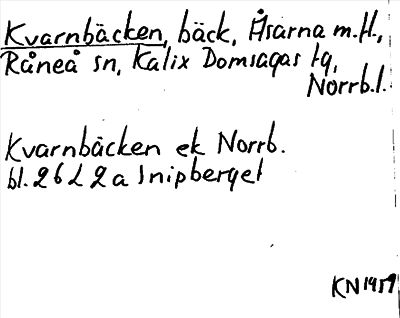 Kvarnbäcken, bäck, Åsarna m.fl.,
Råneå sn, Kalix Domsagas tg,
Norrb.l.
Kvarnbäcken ek Norrb.
bl. 26 L 2 a Snipberget
KN 1959